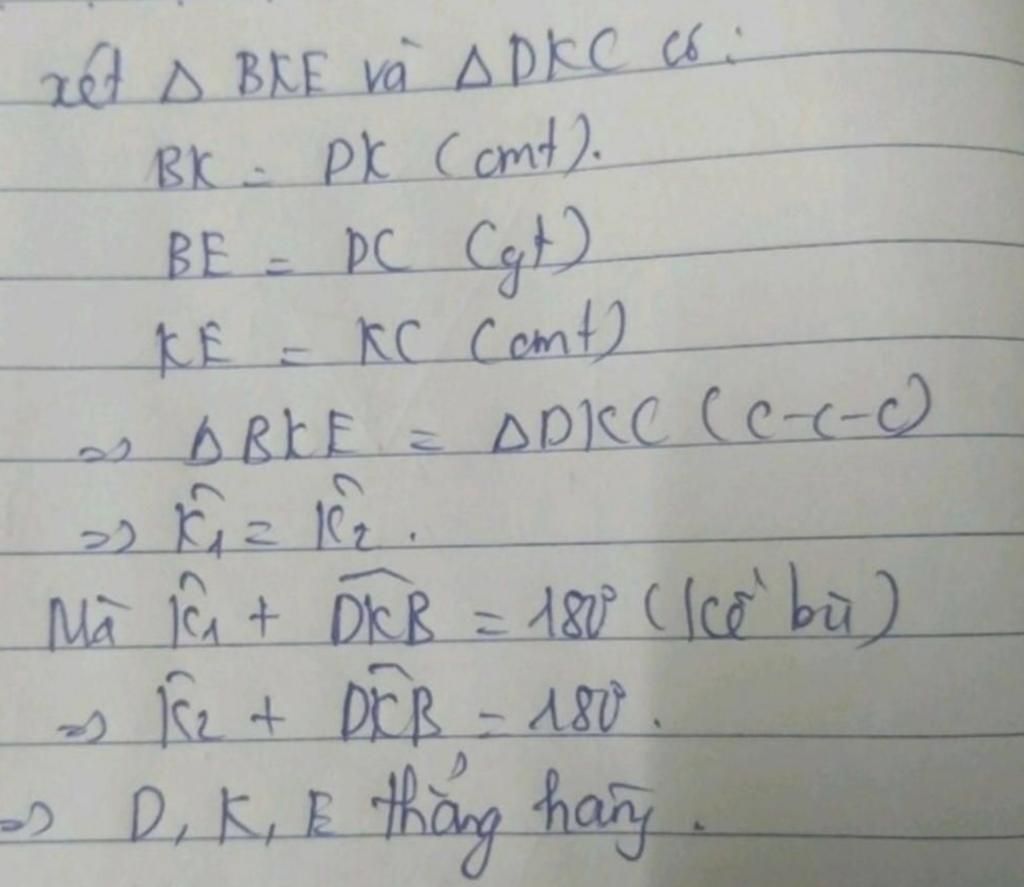 xét Δ BKE và Δ DKC có:
BK = DK (cmt).
BE = DC (gt)
KE = KC (cmt)
=> Δ BKE = Δ DKC (c-c-c)
=> K̂₁ = K̂₂.
Mà K̂₁ + D̂K̂B̂ = 180° (kề bù)
=> K̂₂ + D̂K̂B̂ = 180°.
=> D, K, E thẳng hàng.